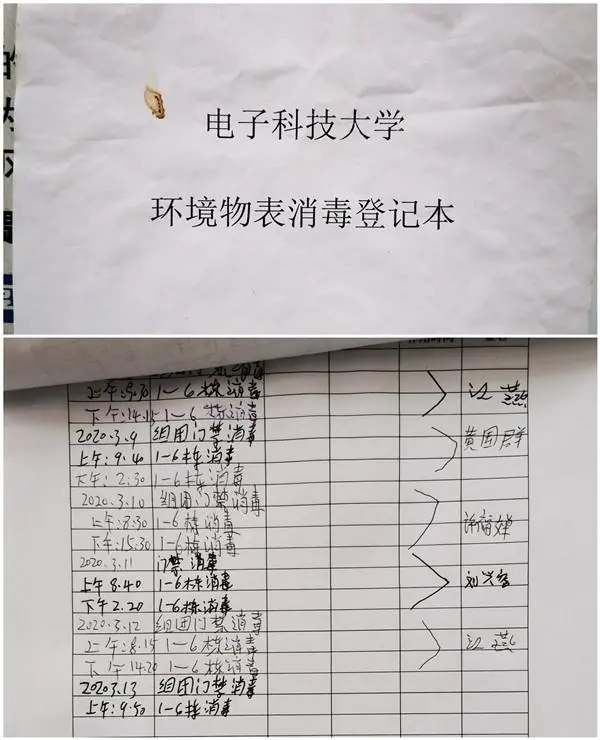 电子科技大学
环境物表消毒登记本
上午:8:30 1-6栋消毒
下午:14:15 1-6栋消毒 江燕
2020.3.9 组团门禁消毒
上午:9:40 1-6栋消毒 黄国群
下午:2:30 1-6栋消毒
2020.3.10 组团门禁消毒
上午:8:30 1-6栋消毒
下午:15:30 1-6栋消毒
2020.3.11 门禁消毒
上午8.40 1-6栋消毒
下午2.20 1-6栋消毒
2020.3.12 组团门禁消毒
上午:8.15 1-6栋消毒 江燕
下午14:20 1-6栋消毒
2020.3.13 组团门禁消毒
上午:9:50 1-6栋消毒